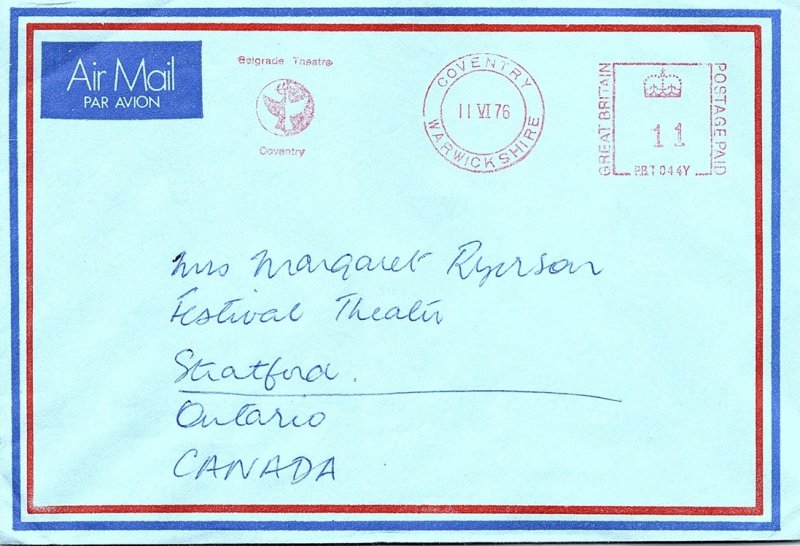 Air Mail
PAR AVION
Belgrade Theatre
Coventry
COVENTRY
11 VI 76
WARWICKSHIRE
GREAT BRITAIN
11
P.B.T 044Y
POSTAGE PAID
Mrs Margaret Ryerson
Festival Theatr
Stratford.
Ontario
CANADA